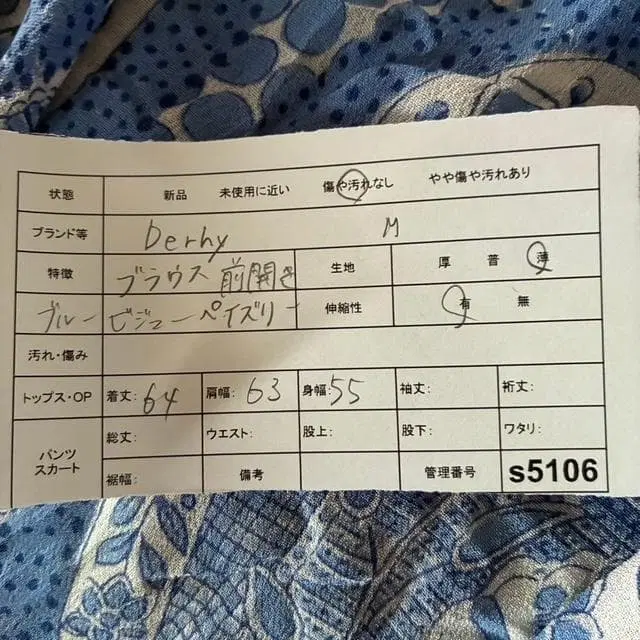 状態 新品 未使用に近い 傷や汚れなし やや傷や汚れあり
ブランド等 Derhy M
特徴 ブラウス 前開き 生地 厚 普 薄
ブルー ビジュー ペイズリー 伸縮性 有 無
汚れ・傷み
トップス・OP 着丈: 64 肩幅: 63 身幅: 55 袖丈: 裄丈:
パンツ スカート 総丈: ウエスト: 股上: 股下: ワタリ:
裾幅: 備考 管理番号 s5106